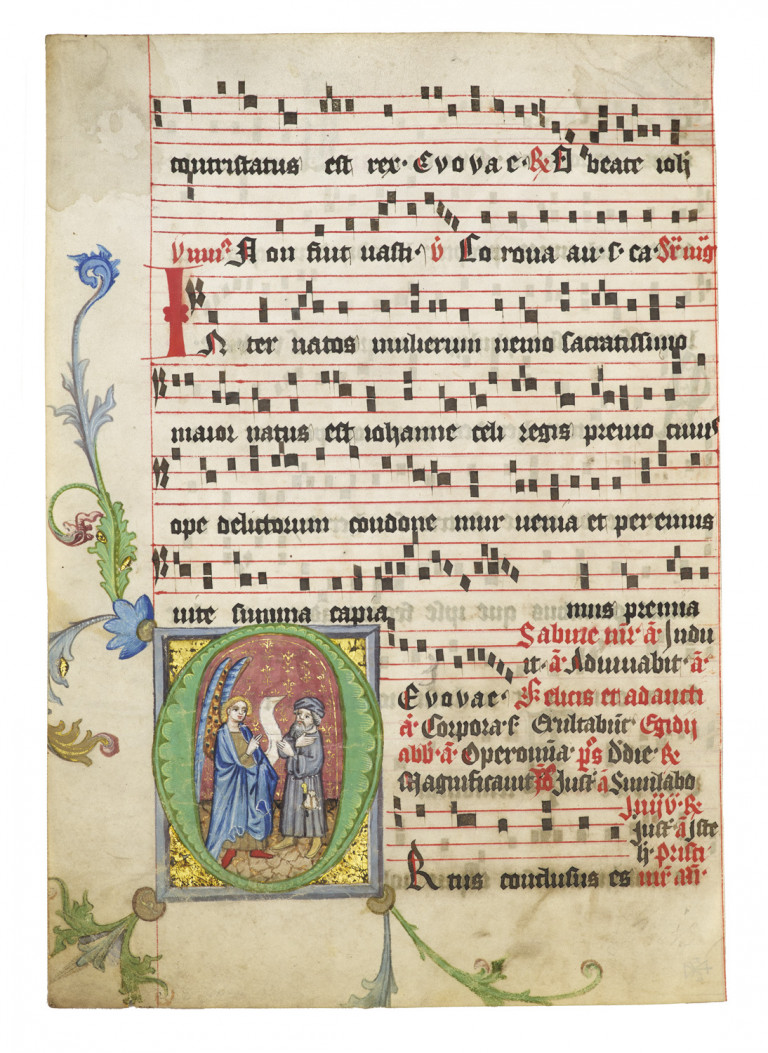 contristatus est rex · Evovae · R̄ O beate ioh
Non sint uasti · v̇ Corona au · s · ca ·
IN ter natos mulierum nemo sacratissimo
maior natus est iohanne celi regis premo cuius
ope delictorum condone mur uenia et perennis
uite summa capia mus premia
Sabine mr̄ · ā · Indu
it · ā · Adiuuabit · ā ·
Evovae · Felicis et adaucti
ā · Corpora s Exultabūt Egidij
abb · ā · Operom̄a · ps̄ Dōie · R̄
Magnificauit Just · ā Similabo
Just · ā Iste
h · Prisci
Ortus conclusus es mr̄ · an̄ ·